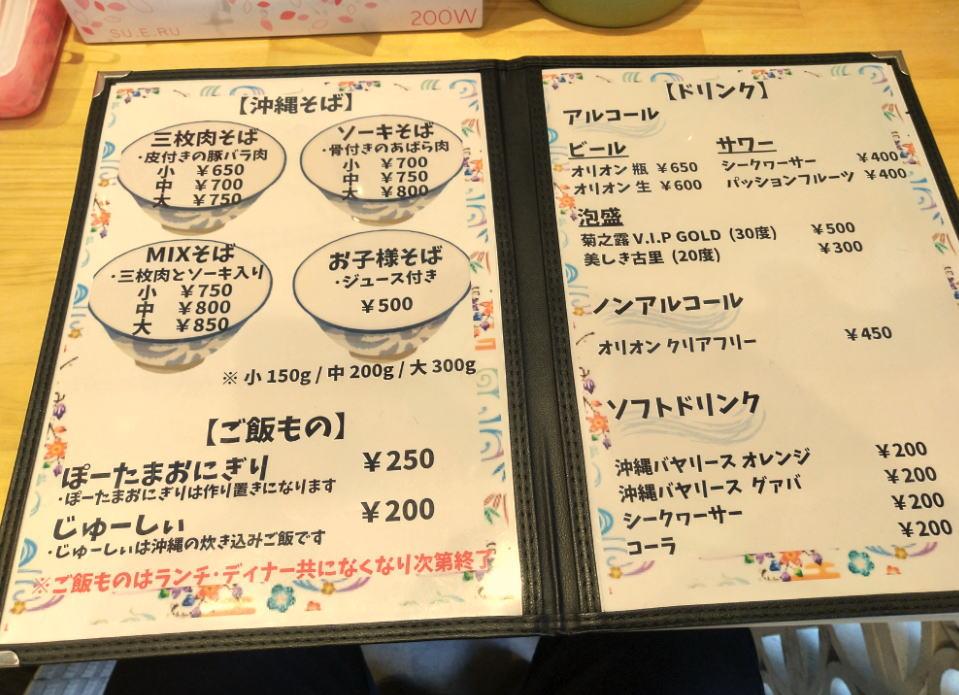 SU.E.RU
200W
【沖縄そば】
三枚肉そば
・皮付きの豚バラ肉
小 ￥650
中 ￥700
大 ￥750
ソーキそば
・骨付きのあばら肉
小 ￥700
中 ￥750
大 ￥800
MIXそば
・三枚肉とソーキ入り
小 ￥750
中 ￥800
大 ￥850
お子様そば
・ジュース付き
￥500
※ 小 150g / 中 200g / 大 300g
【ご飯もの】
ぽーたまおにぎり ￥250
・ぽーたまおにぎりは作り置きになります
じゅーしぃ ￥200
・じゅーしぃは沖縄の炊き込みご飯です
※ご飯ものはランチ・ディナー共になくなり次第終了
【ドリンク】
アルコール
ビール
オリオン 瓶 ￥650
オリオン 生 ￥600
サワー
シークヮーサー ￥400
パッションフルーツ ￥400
泡盛
菊之露 V.I.P GOLD (30度) ￥500
美しき古里 (20度) ￥300
ノンアルコール
オリオン クリアフリー ￥450
ソフトドリンク
沖縄バヤリース オレンジ ￥200
沖縄バヤリース グァバ ￥200
シークヮーサー ￥200
コーラ ￥200